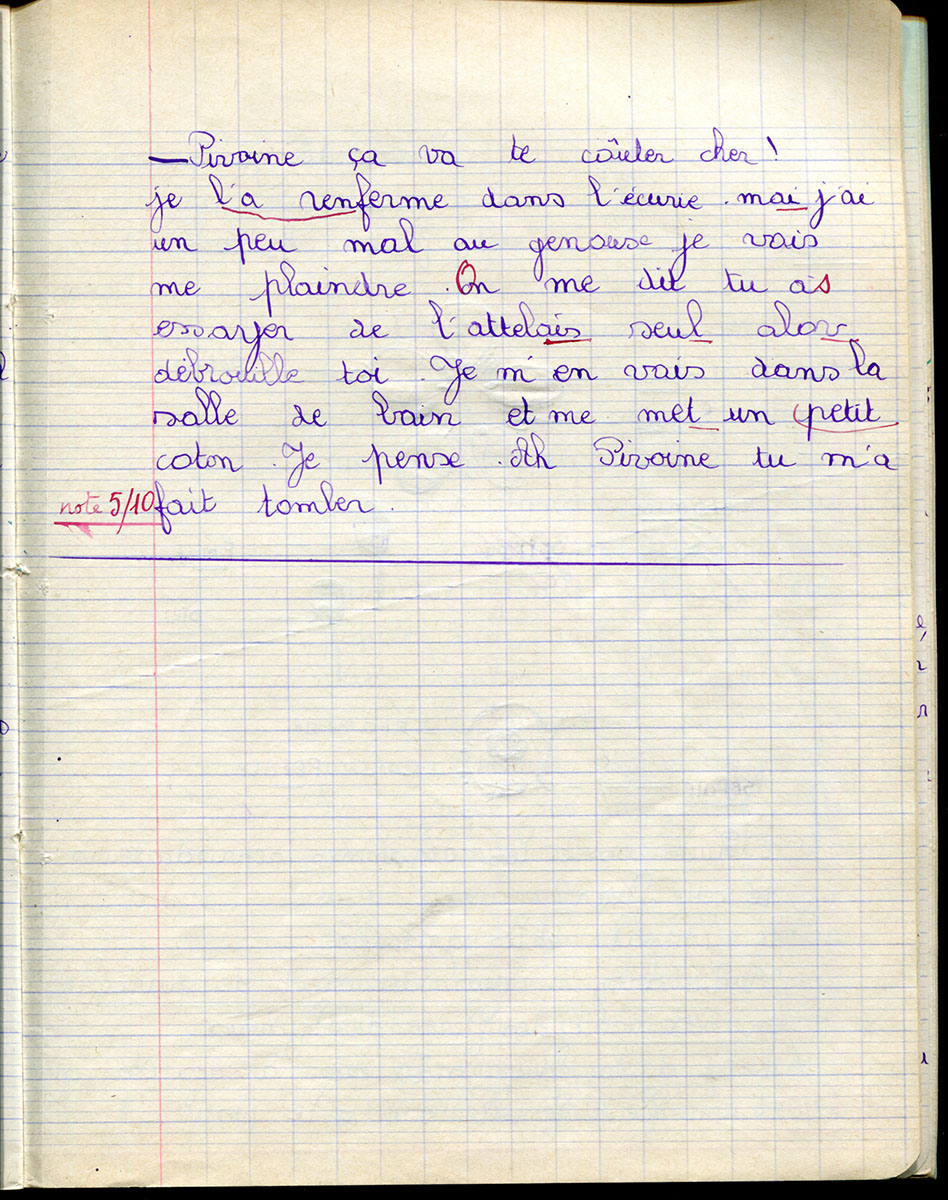 — Pivoine ça va te coûter cher !
je l'a renferme dans l'écurie . mai j'ai
un peu mal au genouse je vais
me plaindre . On me dit tu as
essayer de l'attelais seul alors
débrouille toi . Je m'en vais dans la
salle de bain et me met un petit
coton . Je pense . Ah Pivoine tu m'a
note 5/10 fait tomber .